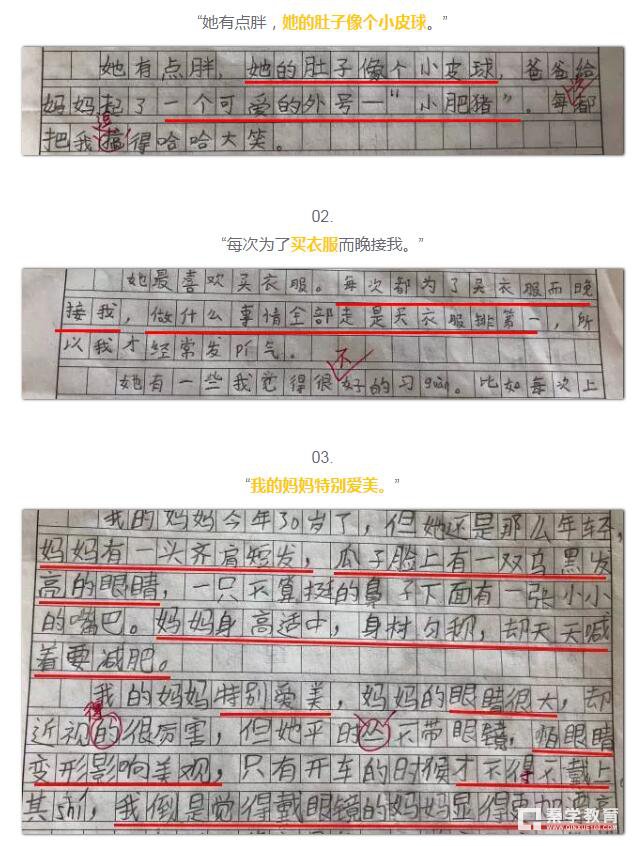 “她有点胖，她的肚子像个小皮球。”
她有点胖，她的肚子像个小皮球，爸爸给
妈妈起了一个可爱的外号—“小肥猪”。每都
逗
把我搞得哈哈大笑。
02.
“每次为了买衣服而晚接我。”
她最喜欢买衣服。每次都为了买衣服而晚
接我，做什么事情全部走是天衣服排第一，所
以我才经常发pí气。
不
她有一些我觉得很好的习guàn。比如每次上
03.
“我的妈妈特别爱美。”
我的妈妈今年30岁了，但她还是那么年轻，
妈妈有一头齐肩短发，瓜子脸上有一双乌黑发
高的眼睛，一只不算挺的鼻子下面有一张小小
的嘴巴。妈妈身高适中，身材匀称，却天天喊
着要减肥。
我的妈妈特别爱美，妈妈的眼睛很大，却
得
近视的很厉害，但她平时不带眼镜，怕眼睛
变形影响美观，只有开车的时候才不得不戴上。
其shí，我倒是觉得戴眼镜的妈妈显得更加
秦学教育
WWW.QINXUE100.COM